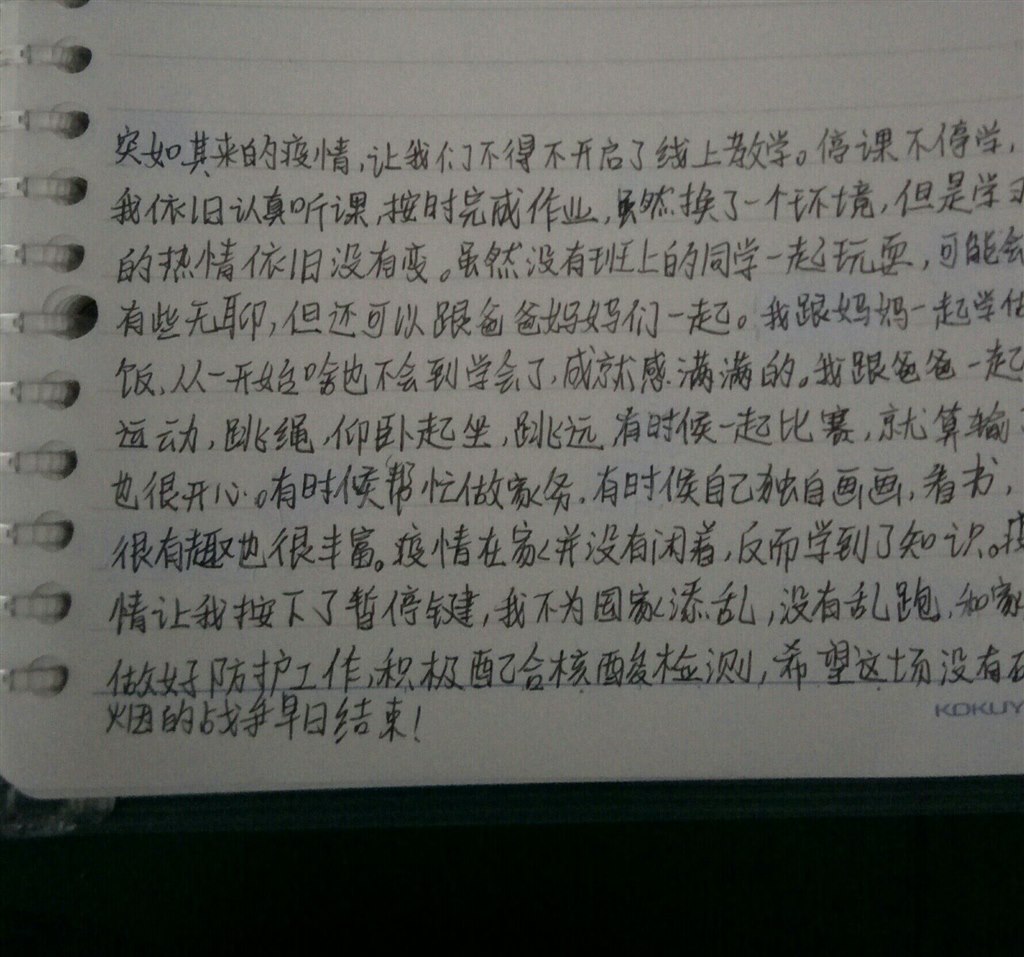 突如其来的疫情,让我们不得不开启了线上教学。停课不停学,
我依旧认真听课,按时完成作业,虽然换了一个环境,但是学习
的热情依旧没有变。虽然没有班上的同学一起玩耍,可能会
有些无聊,但还可以跟爸爸妈妈们一起。我跟妈妈一起学做
饭,从一开始啥也不会到学会了,成就感满满的。我跟爸爸一起
运动,跳绳,仰卧起坐,跳远,有时候一起比赛,就算输
也很开心。有时候帮忙做家务,有时候自己独自画画,看书,
很有趣也很丰富。疫情在家并没有闲着,反而学到了知识。疫
情让我按下了暂停键,我不为国家添乱,没有乱跑,和家
做好防护工作,积极配合核酸检测,希望这场没有硝
烟的战争早日结束!
KOKUY